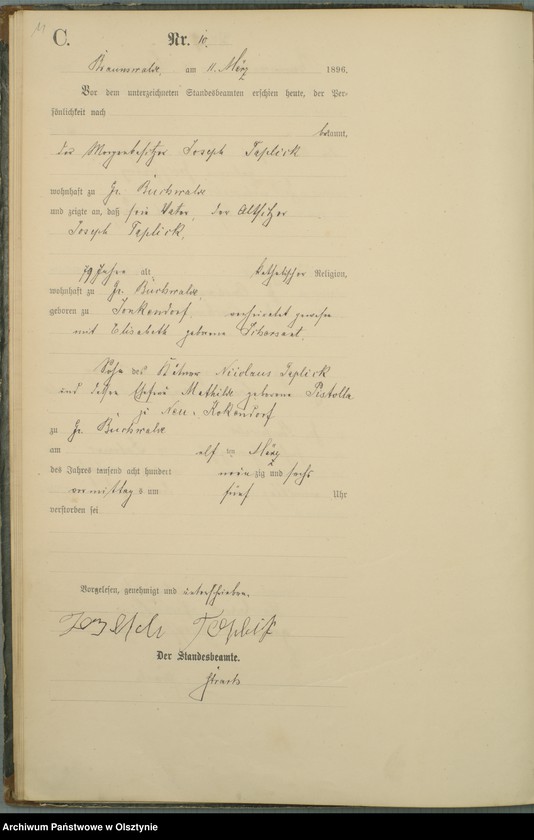 11
C.
Nr. 10.
Braunswalde, am 11. März 1896.
Vor dem unterzeichneten Standesbeamten erschien heute, der Per-
sönlichkeit nach
bekannt,
der Morgenbesitzer Joseph Taplick
wohnhaft zu Gr. Buchwalde
und zeigte an, daß sein Vater, der Altsitzer
Joseph Taplick,
79 Jahre alt katholischer Religion,
wohnhaft zu Gr. Buchwalde,
geboren zu Jonkendorf, verheiratet gewesen
mit Elisabeth geborene
Sohn des Kätner Nicolaus Taplick
und dessen Ehefrau Mathilde geborene Pistolla
zu Neu-Kokendorf
zu Gr. Buchwalde
am elf ten März
des Jahres tausend acht hundert neun zig und sechs
vormittag s um fünf Uhr
verstorben sei
Vorgelesen, genehmigt und unterschrieben.
Joseph Taplick
Der Standesbeamte.
Archiwum Państwowe w Olsztynie